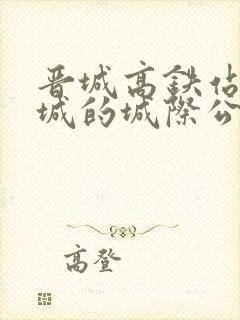 晋城高鉄佔
城的城際公
高登